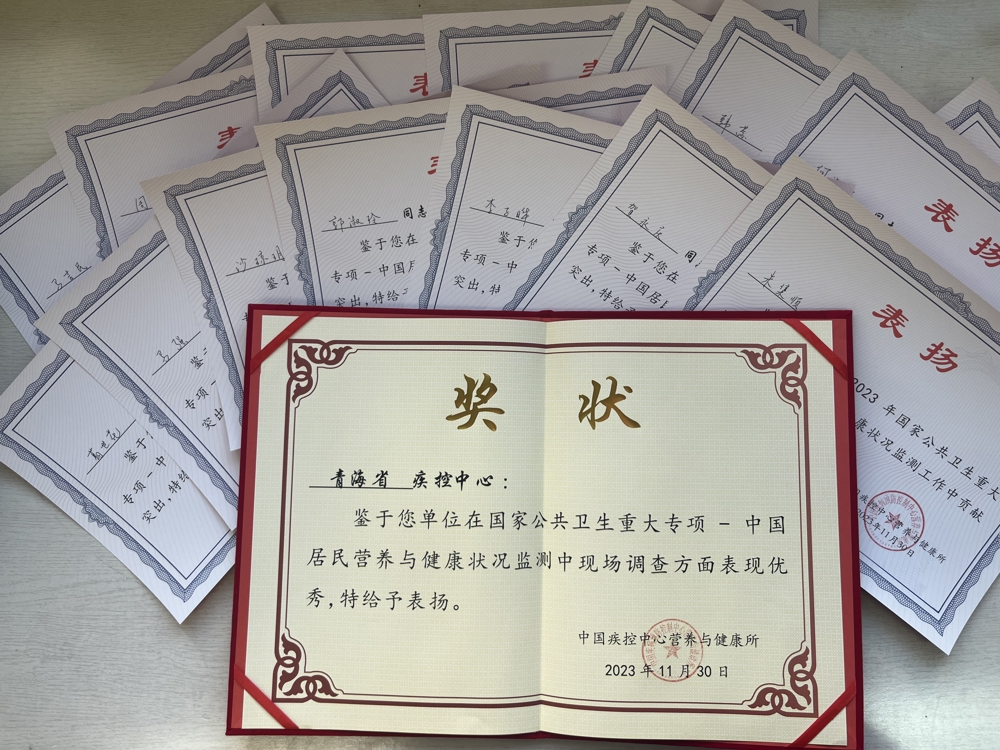 表
表
表
韩
同
表
郭淑珍 同志
鉴于您在
专项－中国
突出，特给
李
鉴于
专项－中
突出，特
贺永庆 同
鉴于您在
专项－中国居
突出，特给予
何
同
表扬
马吉民
沙琼玥
鉴于
马强
鉴
专项
突出
鉴于
专项－中
突出，特给
表扬
2023 年国家公共卫生重大
康状况监测工作中贡献
中国疾控中心营养与健康所
2023年11月30日
奖状
青海省 疾控中心：
鉴于您单位在国家公共卫生重大专项－中国
居民营养与健康状况监测中现场调查方面表现优
秀，特给予表扬。
中国疾控中心营养与健康所
2023 年 11 月 30 日